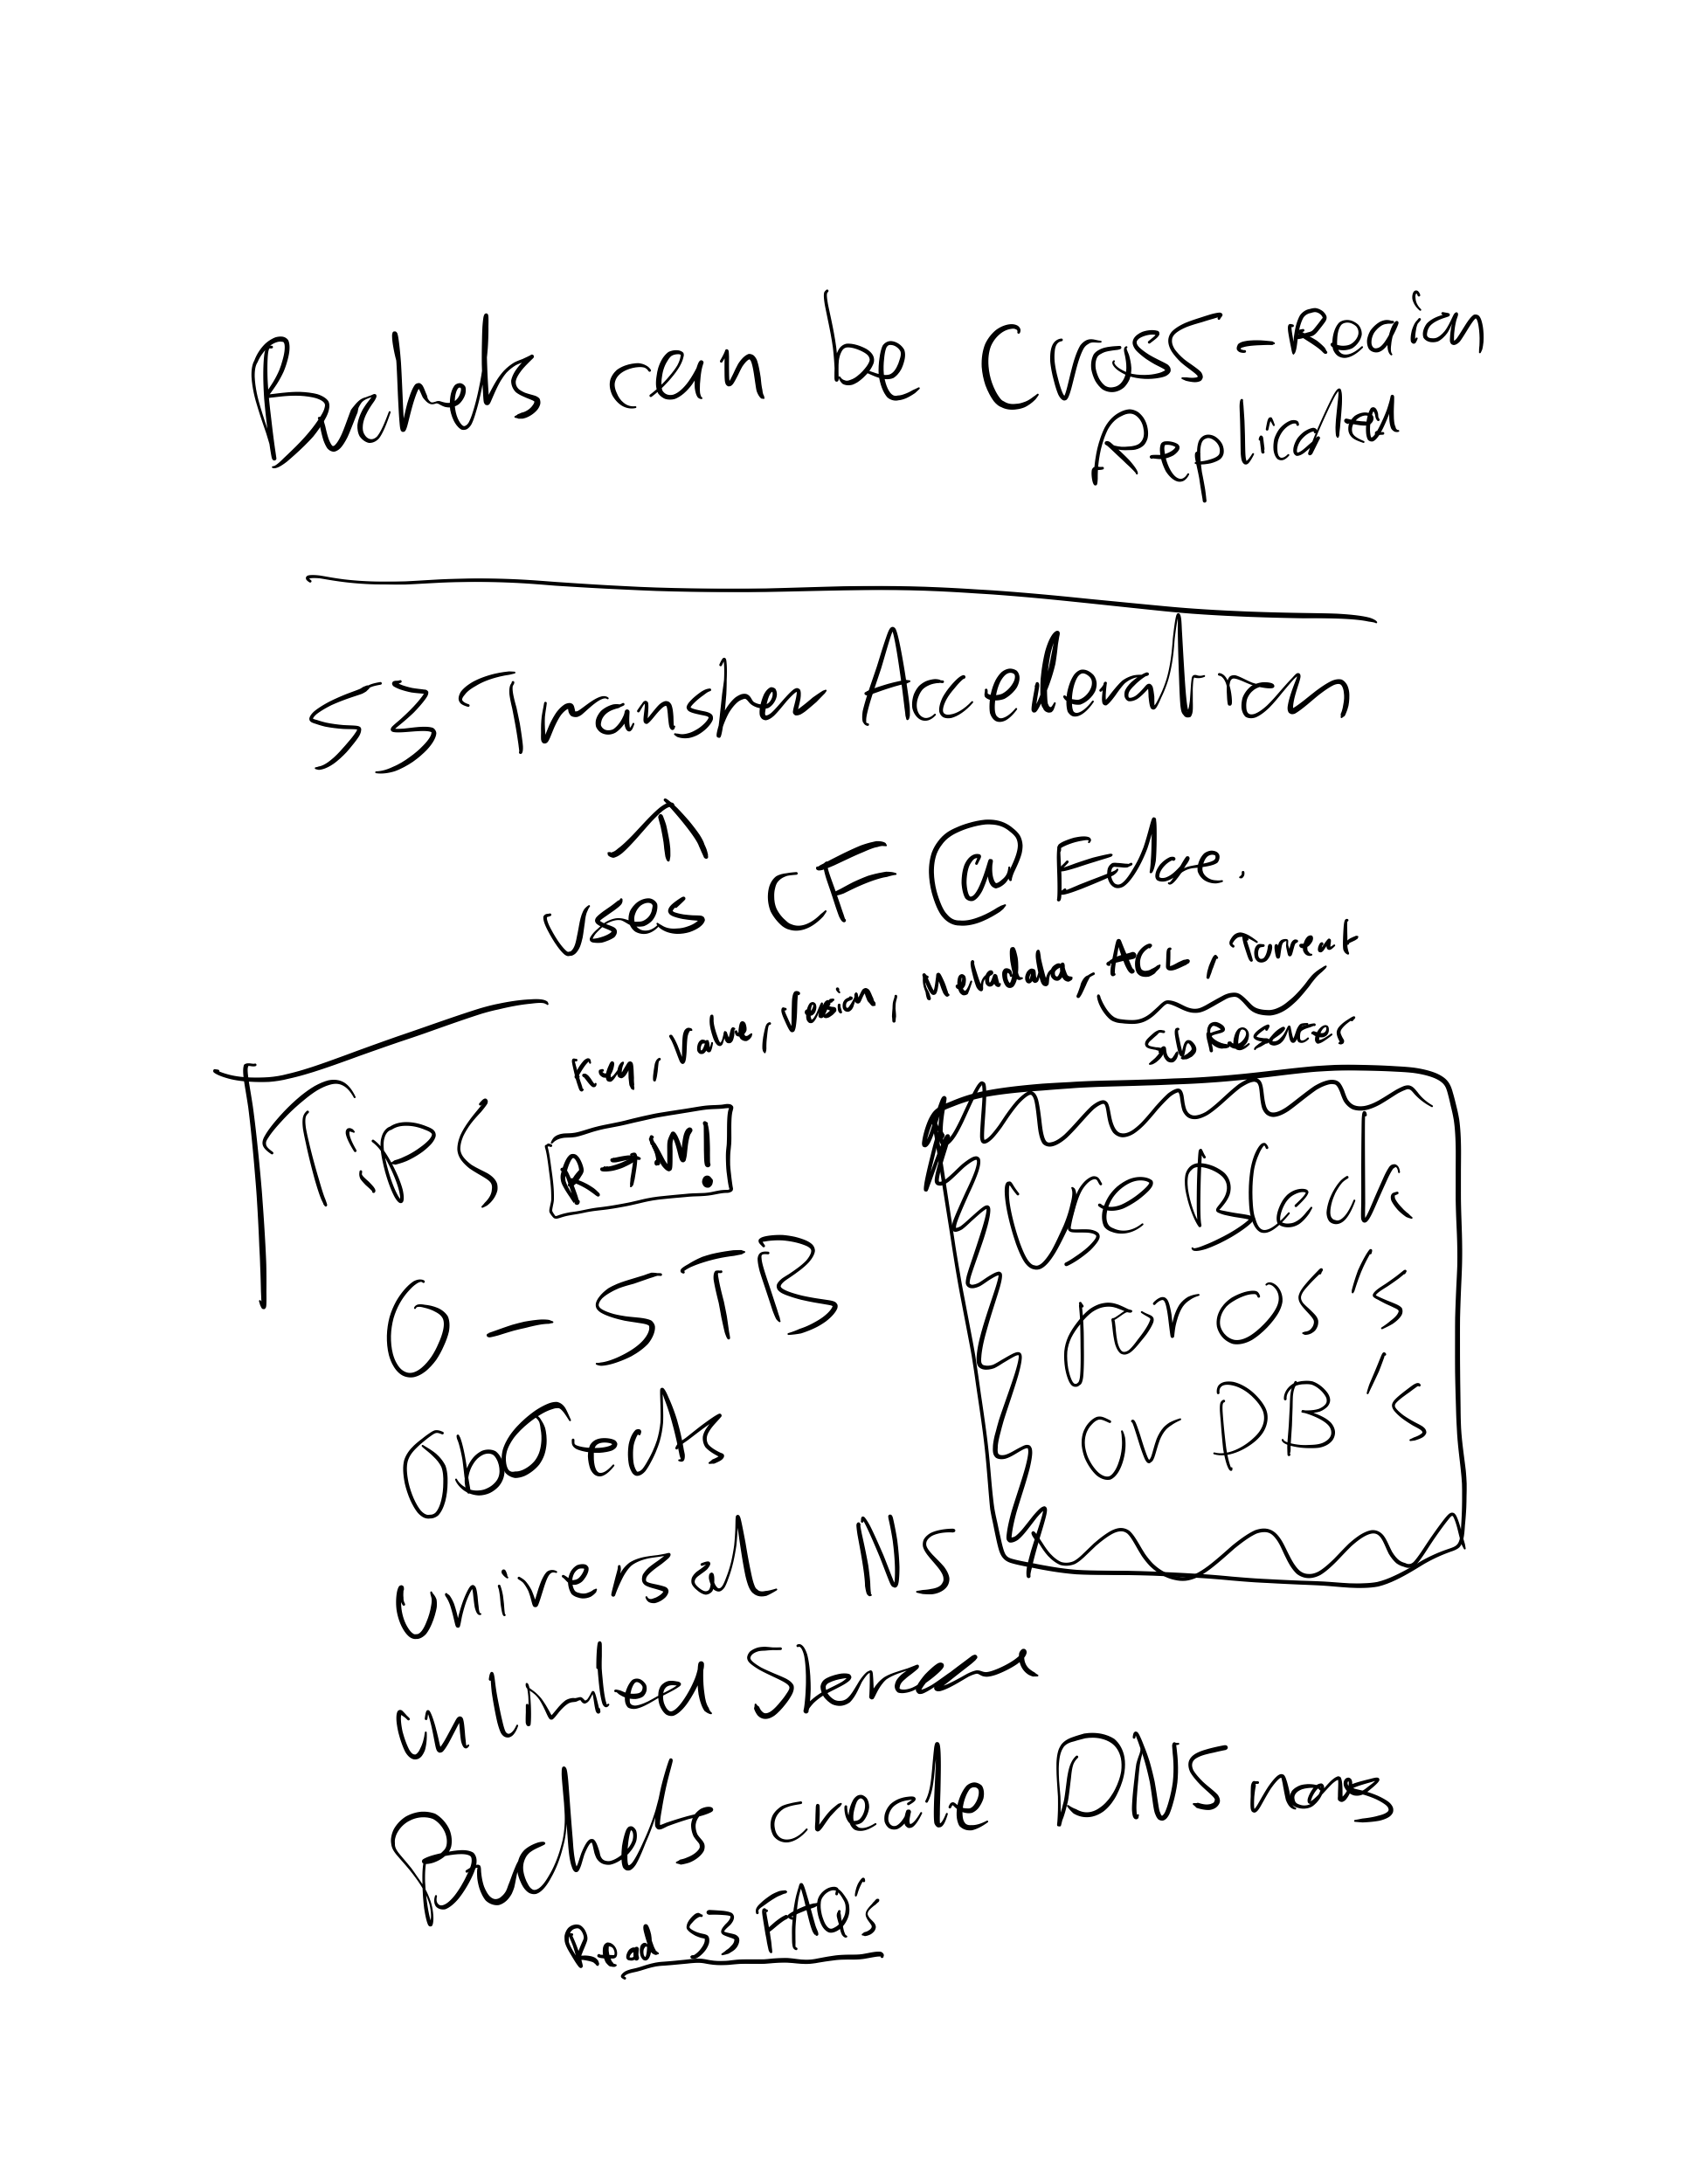 Buckets can be Cross-Region
Replicated
S3 Transfer Acceleration
uses CF @ Edge.
Key, value, Version, Metadata, ACL, Torrent
sub Resources
TiPS
RTM!
0 - 5 TB
Objects
universal NS
unlimited Storage
Buckets create DNS names
Read S3 FAQ's
Use Block
for OS's
or DB's